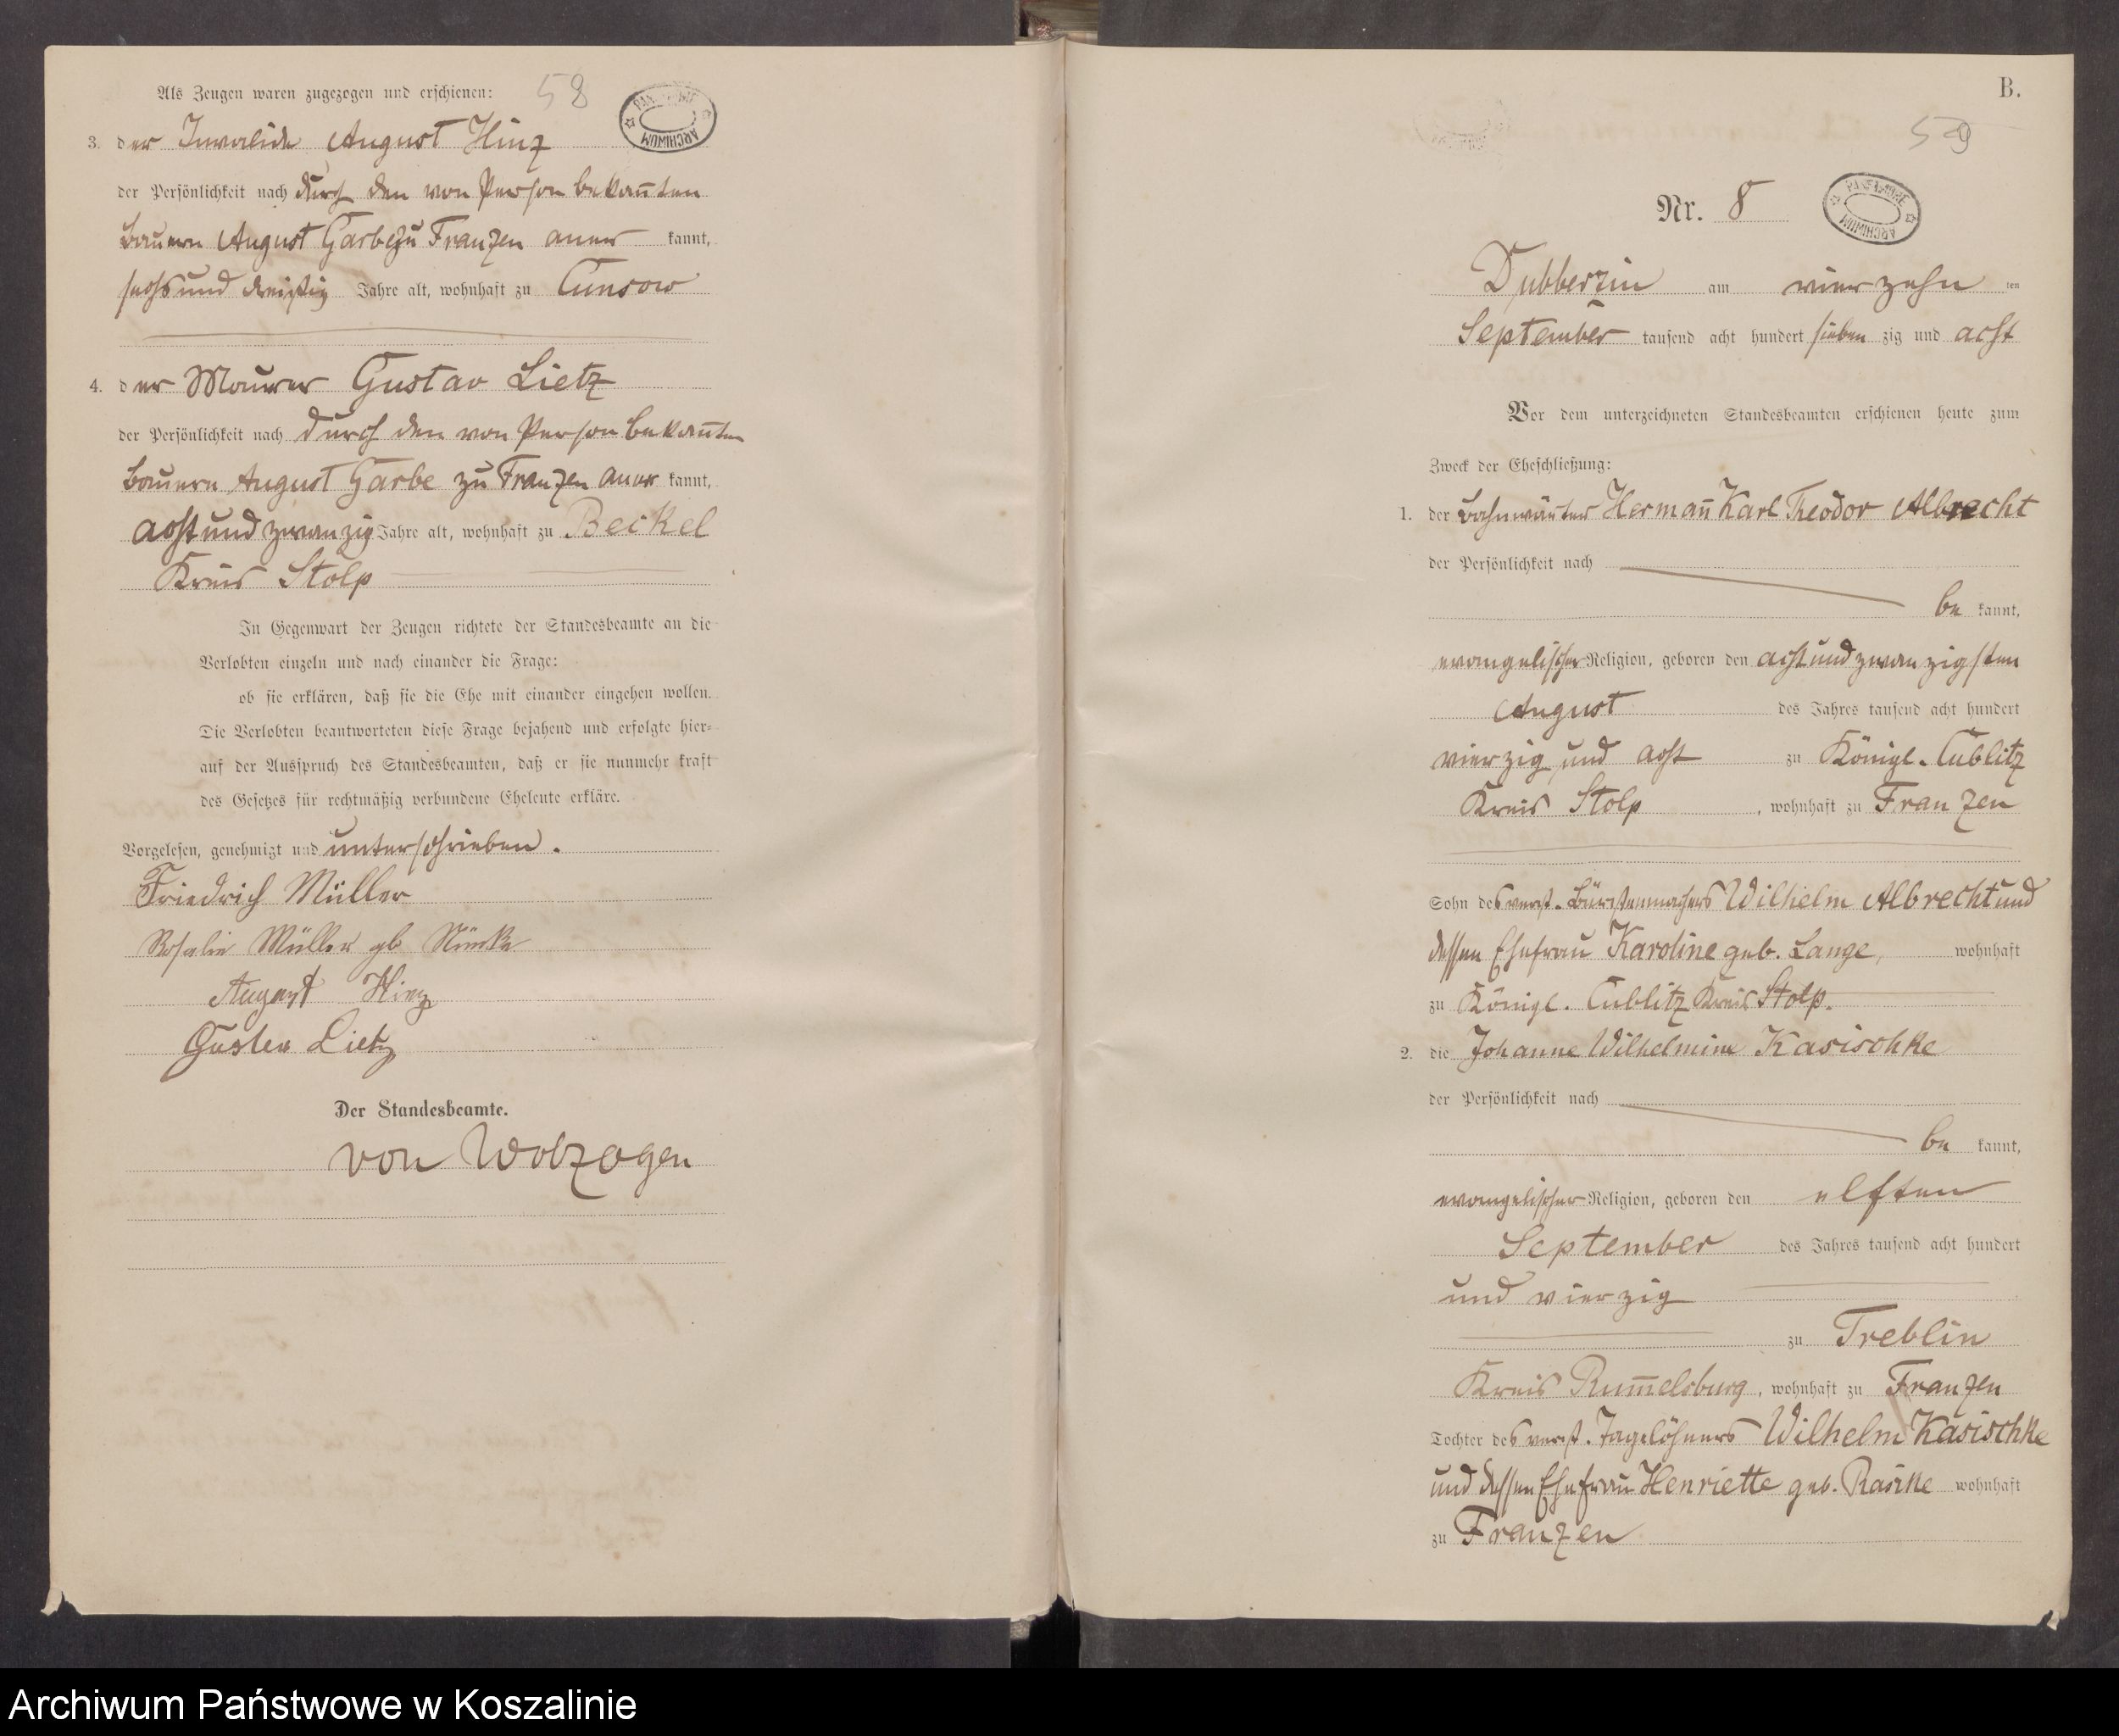 58
PAŃSTWOWE ARCHIWUM
Als Zeugen waren zugezogen und erschienen:
3. der Invalide August Hinz
der Persönlichkeit nach durch den von Person bekan̄ten
Bauern August Garbe zu Franzen aner kannt,
sechsund dreißig Jahre alt, wohnhaft zu Cunsow
4. der Maurer Gustav Lietz
der Persönlichkeit nach durch den von Person bekan̄ten
Bauern August Garbe zu Franzen aner kannt,
acht und zwanzig Jahre alt, wohnhaft zu Beckel
Kreis Stolp
In Gegenwart der Zeugen richtete der Standesbeamte an die
Verlobten einzeln und nach einander die Frage:
ob sie erklären, daß sie die Ehe mit einander eingehen wollen.
Die Verlobten beantworteten diese Frage bejahend und erfolgte hier-
auf der Ausspruch des Standesbeamten, daß er sie nunmehr kraft
des Gesetzes für rechtmäßig verbundene Eheleute erkläre.
Vorgelesen, genehmigt und unterschrieben.
Friedrich Müller
Rosalie Müller gb
August Hinz
Gustav Lietz
Der Standesbeamte.
von Wolzogen
B.
59
Nr. 8
PAŃSTWOWE ARCHIWUM
Dubberzin am vierzehn ten
September tausend acht hundert sieben zig und acht
Vor dem unterzeichneten Standesbeamten erschienen heute zum
Zweck der Eheschließung:
1. der Bahnwärter Herman̄ Karl Theodor Albrecht
der Persönlichkeit nach
be kannt,
evangelischer Religion, geboren den acht und zwanzigsten
August des Jahres tausend acht hundert
vierzig und acht zu Königl. Cublitz
Kreis Stolp, wohnhaft zu Franzen
Sohn des verst. Bürstenmachers Wilhelm Albrecht und
dessen Ehefrau Karoline geb. Lange, wohnhaft
zu Königl. Cublitz Kreis Stolp.
2. die Johanne Wilhelmine Kasischke
der Persönlichkeit nach
be kannt,
evangelischer Religion, geboren den elften
September des Jahres tausend acht hundert
und vierzig
zu Treblin
Kreis Rum̄elsburg, wohnhaft zu Franzen
Tochter des verst. Tagelöhners Wilhelm Kasischke
und dessen Ehefrau Henriette geb. wohnhaft
zu Franzen
Archiwum Państwowe w Koszalinie